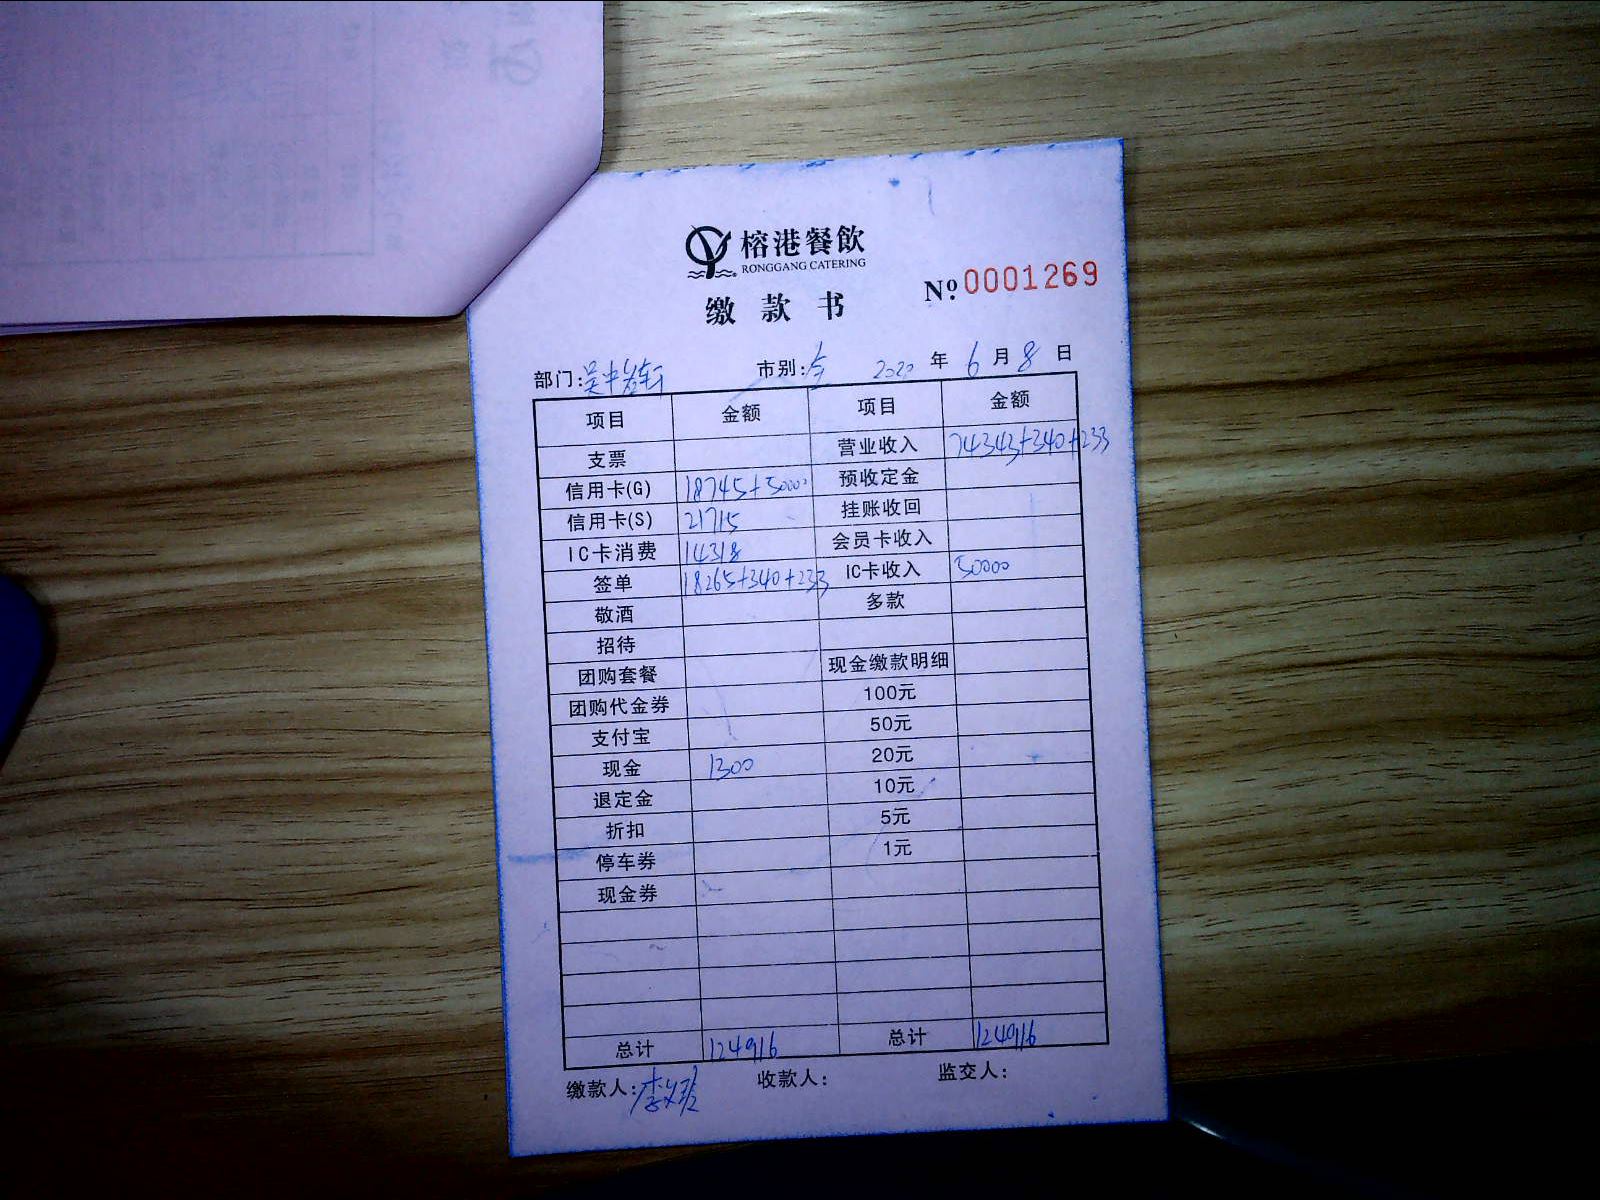 榕港餐飲
RONGGANG CATERING
缴款书
№ 0001269
部门:吴中 市别: 2020 年 6 月 8 日
项目 金额 项目 金额
支票 营业收入 74343+340+233
信用卡(G) 18745+50000 预收定金
信用卡(S) 21715 挂账收回
IC卡消费 14318 会员卡收入
签单 18265+340+233 IC卡收入 50000
敬酒 多款
招待
团购套餐 现金缴款明细
团购代金券 100元
支付宝 50元
现金 1300 20元
退定金 10元
折扣 5元
停车券 1元
现金券
总计 124916 总计 124916
缴款人:李 收款人: 监交人: